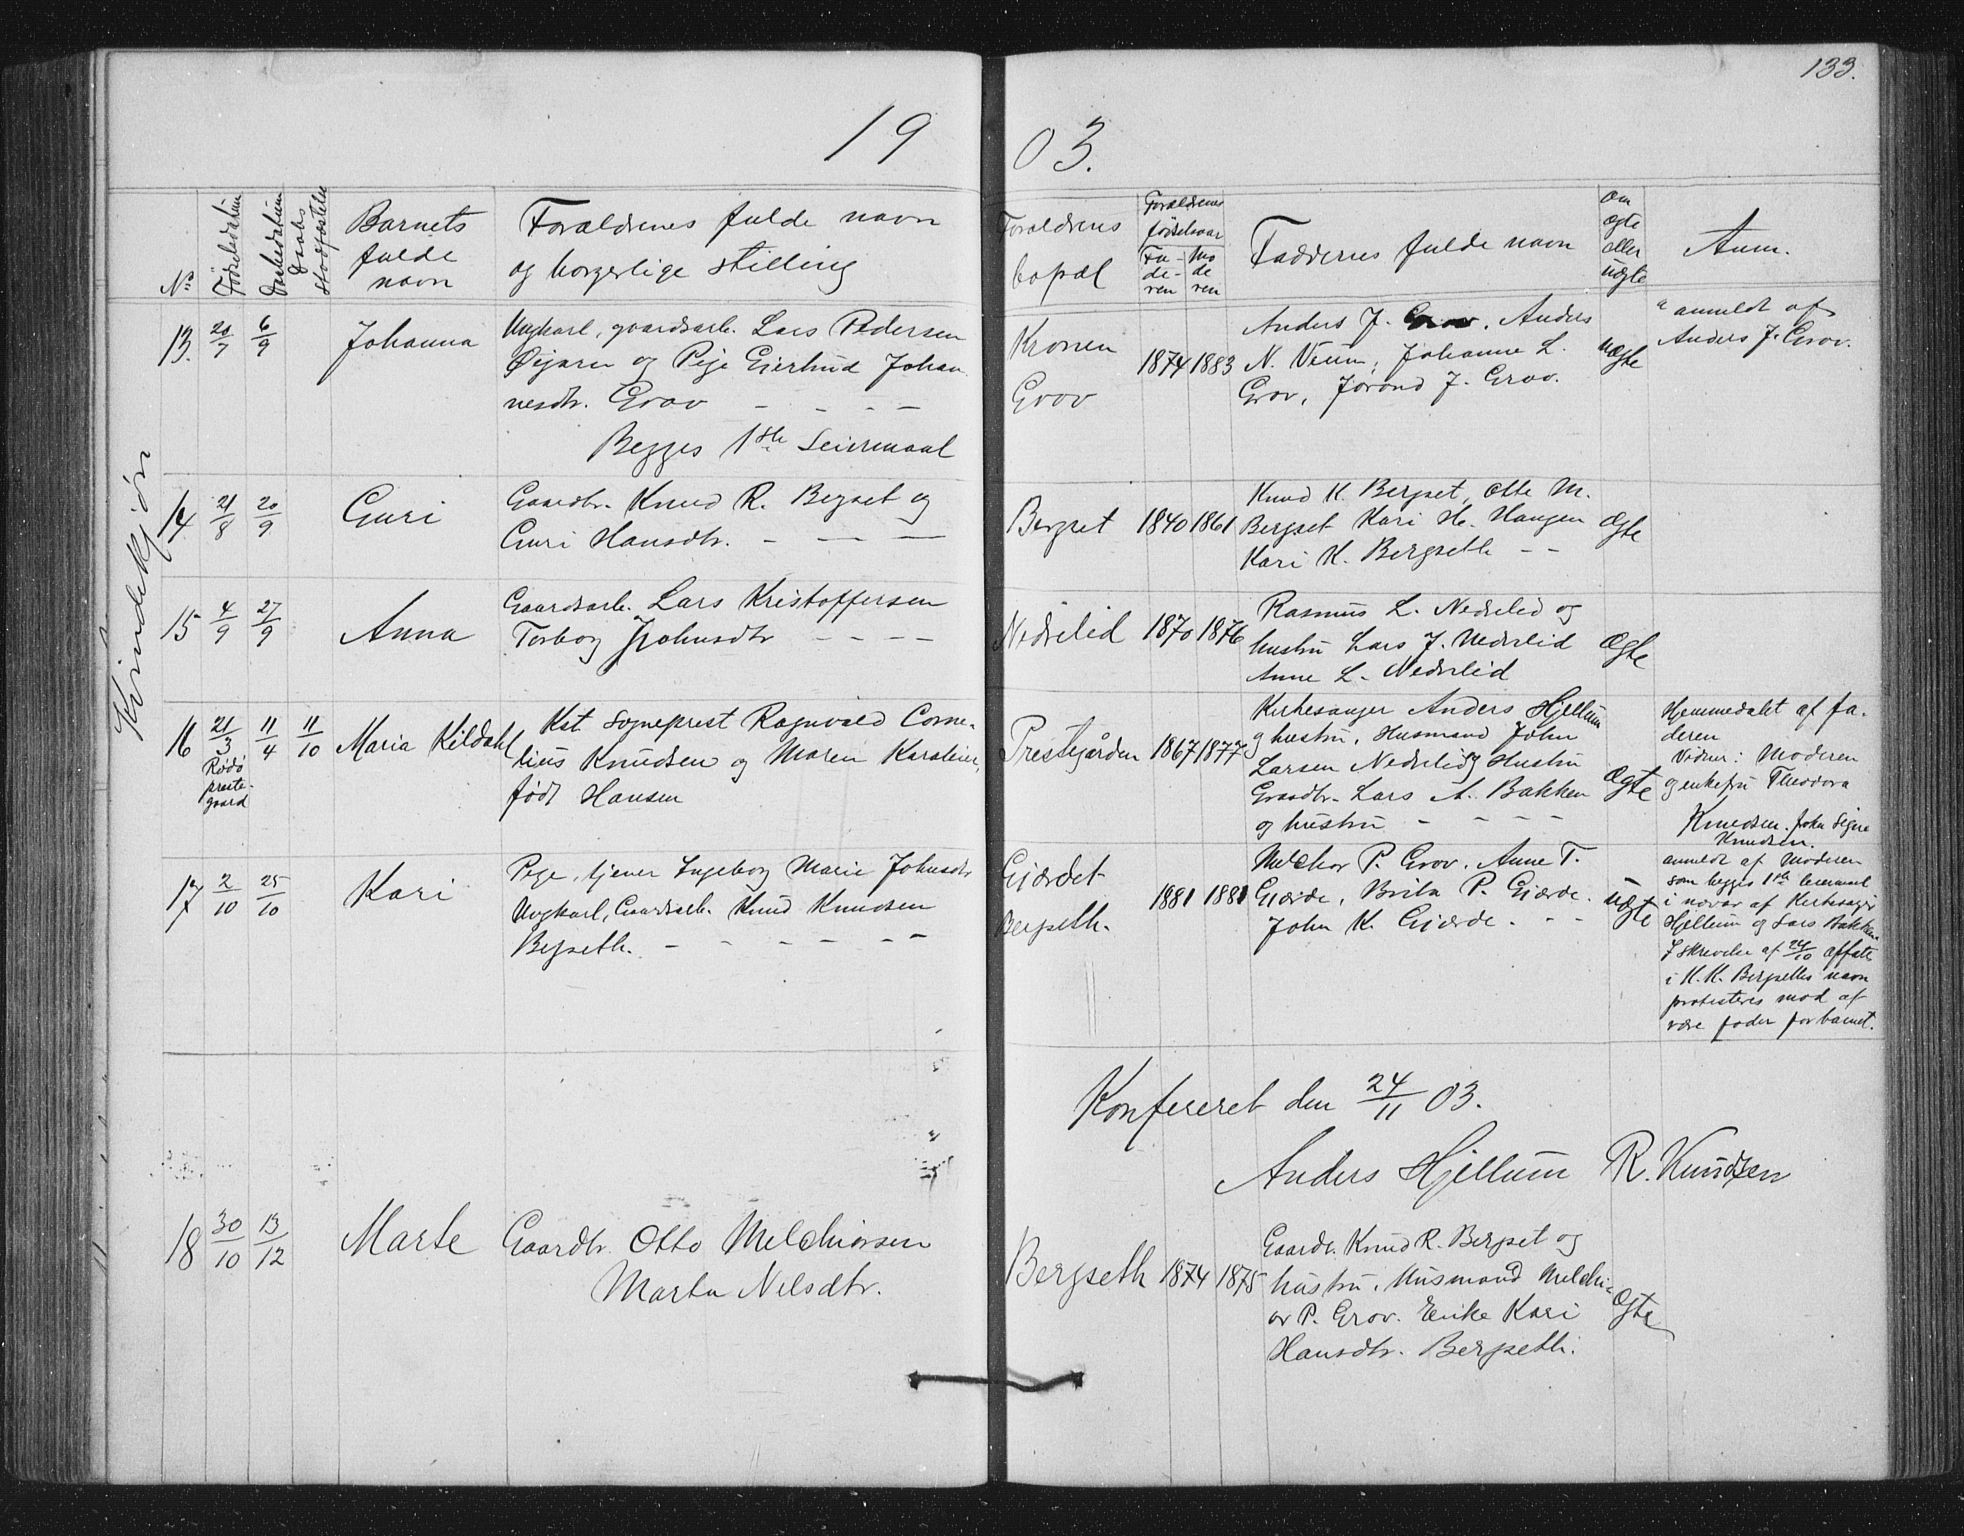 133.
19 03.
Kvindekjøn
No
Fødselsdatum
Daabsdatum
Daabs
Stadfæstelse
Barnets
fulde
navn
Forældrenes fulde navn
og borgerlige stilling
Forældrenes
bopæl
Forældrenes
fødselsaar
Fa-
de-
ren
Mo
de
ren
Faddernes fulde navn
Om
ægte
eller
uægte
Anm.
13. 20/7 6/9 Johanna
Ungkarl, gaardsarb. Lars Pedersen
Øijaren og Pige Gjertrud Johan
nesdtr. Grov - - - -
Begges 1ste Leiermaal
Kronen
Grov
1874 1883
Anders J. Grov, Anders
N. Veum, Johanne L.
Grov, Jorand J. Grov.
uægte
anmeldt af
Anders J. Grov.
14 21/8 20/9 Guri
Gaardbr. Knud R. Bergset og
Guri Hansdtr. - - -
Bergset 1840 1861
Knud K. Bergset, Otte M.
Bergset Kari H. Haugen
Kari K. Bergseth - -
Ægte
15 4/9 27/9 Anna
Gaardsarb. Lars Kristoffersen
Torborg Johnsdtr - - - -
Nedrelid 1870 1876
Rasmus L. Nedrelid og
hustru Lars J. Nedrelid
Anne L. Nedrelid
Ægte
16 21/3 11/4 11/10 Maria Kildahl
Rødø
preste-
gaard
Kst Sogneprest Ragnvald Corne-
lius Knudsen og Maren Karoline,
født Hansen
Prestegården 1867 1877
Kirkesanger Anders Hjellum
og hustru, Husmand John
Larsen Nedrelid og Hustru
Gaardbr. Lars A. Bakken
og hustru - - - -
Ægte
Hjemmedøbt af fa-
deren
Vidner: Moderen
og enkefru Theodora
Knudsen. frøken Signe
Knudsen.
17 2/10 25/10 Kari
Pige, tjener Ingeborg Marie Johnsdtr
Ungkarl, Gaardsarb. Knud Knudsen
Bergseth. - - - - - -
Gjærdet
Bergseth.
1881 1881
Melchior P. Grov, Anne T.
Gjærde, Brita P. Gjærde.
John K. Gjærde. - -
uægte
anmeldt af Moderen
som begges 1ste leiermaal
i nærvær af Kirkesanger
Hjellum og Lars Bakken.
I skrivelse af 24/10 affattet
i K. K. Bergseths navn
protesteres mod at
være fader for barnet.
Konfereret den 24/11 03.
Anders Hjellum R. Knudsen
18 30/10 13/12 Marte
Gaardbr. Otto Melchiorsen
Marta Nilsdtr.
Bergseth 1874 1875
Gaardbr. Knud R. Bergset og
hustru, Husmand Melchi-
or P. Grov. Enke Kari
Hansdtr. Bergseth.
Ægte